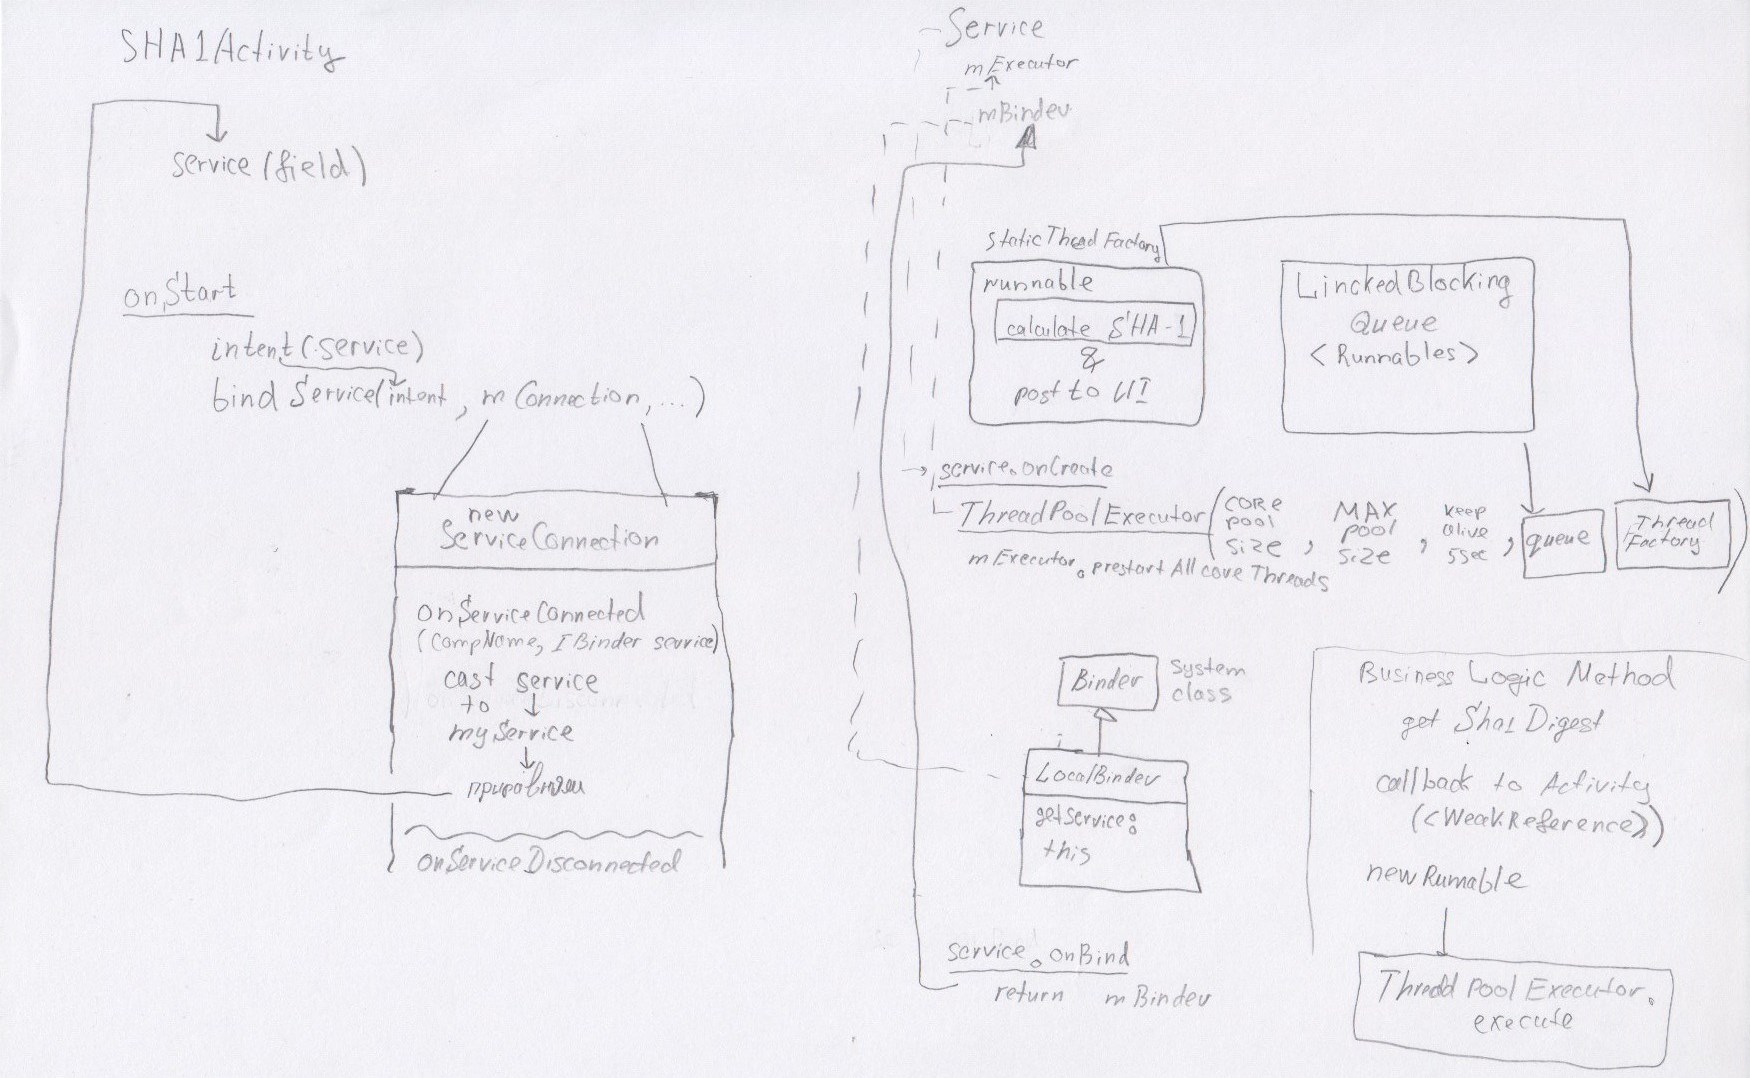 SHA1Activity
service (field)
onStart
intent (service)
bind Service(intent, mConnection, ...)
new
ServiceConnection
onServiceConnected
(CompName, IBinder service)
cast service
to
myService
приравняли
onServiceDisconnected
Service
mExecutor
mBinder
static Thread Factory
runnable
calculate SHA-1
&
post to UI
LinckedBlocking
Queue
<Runnables>
service.onCreate
ThreadPoolExecutor(
core
pool
size ,
MAX
pool
size ,
keep
alive
5sec ,
queue
Thread
Factory
)
mExecutor.prestart All core Threads
Binder
System
class
LocalBinder
getService:
this
service.onBind
return mBinder
Business Logic Method
get Sha1 Digest
callback to Activity
(<WeakReference>)
new Runnable
Thread Pool Executor.
execute